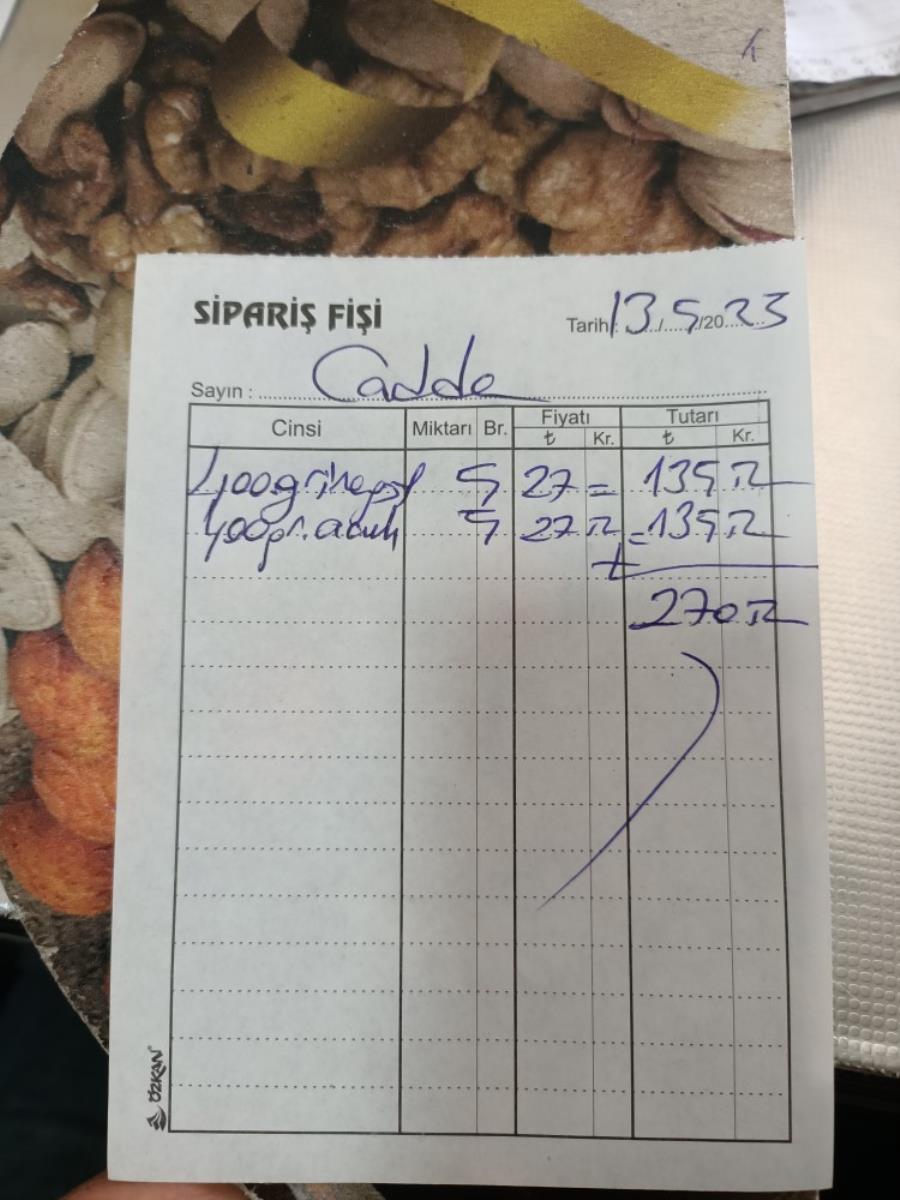 SİPARİŞ FİŞİ
Tarih: 13/5/2023
Sayın : Cadde
Cinsi Miktarı Br. Fiyatı Tutarı
₺ Kr. ₺ Kr.
400gr 5 27 = 135 TL
400gr. acılı 5 27 TL = 135 TL
+
270 TL
ÖZKAN